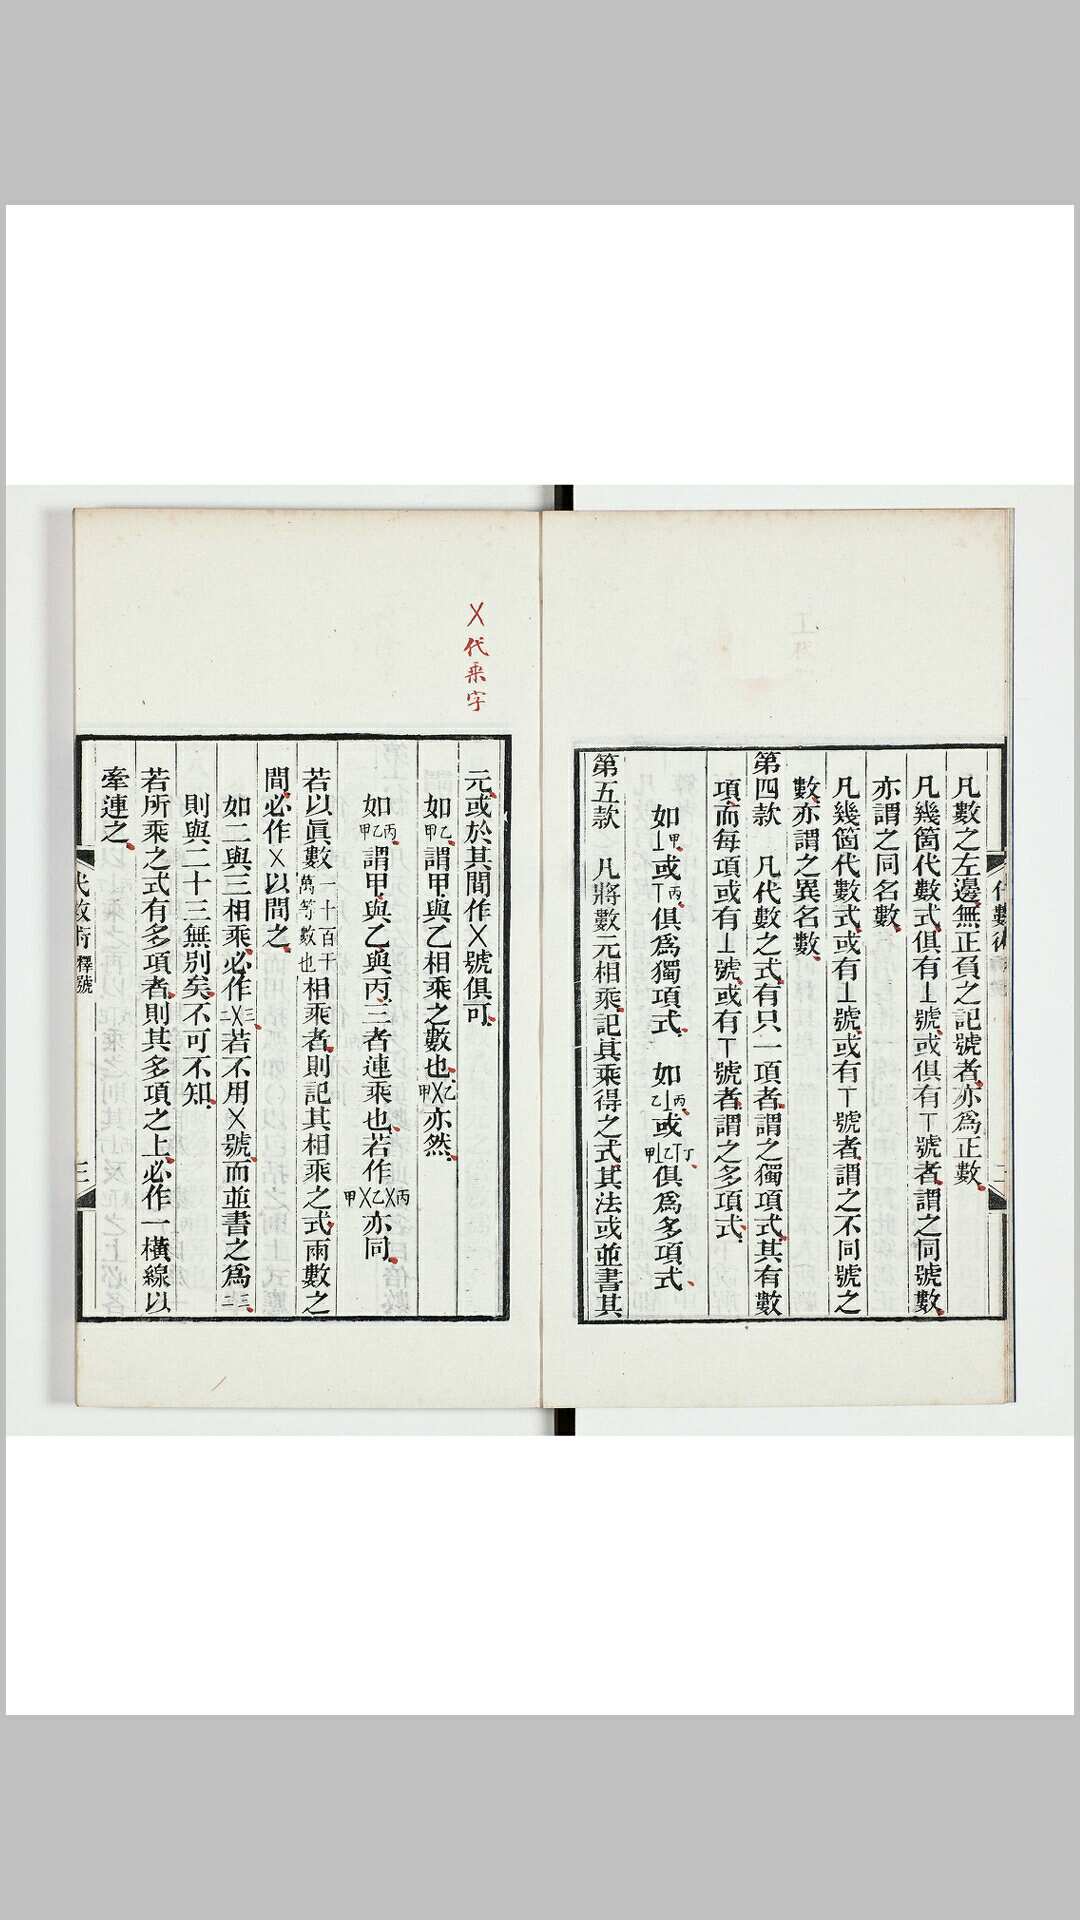 凡數之左邊無正負之記號者亦爲正數
凡幾箇代數式俱有⊥號或俱有丅號者謂之同號數
亦謂之同名數
凡幾箇代數式或有⊥號或有丅號者謂之不同號之
數亦謂之異名數
第四款 凡代數之式有只一項者謂之獨項式其有數
項而每項或有⊥號或有丅號者謂之多項式
如⊥甲或丅丙俱爲獨項式 如乙⊥丙或甲⊥乙丅丁俱爲多項式
第五款 凡將數元相乘記其乘得之式其法或並書其
代數術
二
㐅代乘字
元或於其間作㐅號俱可
如甲乙謂甲與乙相乘之數也甲㐅乙亦然
如甲乙丙謂甲與乙與丙三者連乘也若作甲㐅乙㐅丙亦同
若以眞數一十百千萬等數也相乘者則記其相乘之式兩數之
間必作㐅以間之
如二與三相乘必作二㐅三若不用㐅號而並書之爲二三
則與二十三無別矣不可不知
若所乘之式有多項者則其多項之上必作一橫線以
牽連之
代數術 釋號
三